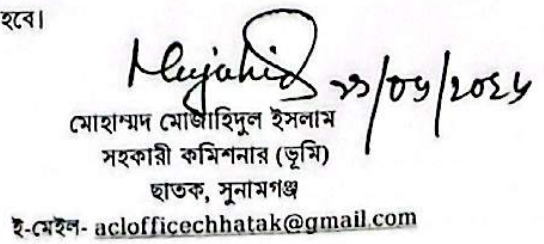 হবে।
Mujahid
মোহাম্মদ মোজাহিদুল ইসলাম
সহকারী কমিশনার (ভূমি)
ছাতক, সুনামগঞ্জ
ই-মেইল- aclofficechhatak@gmail.com